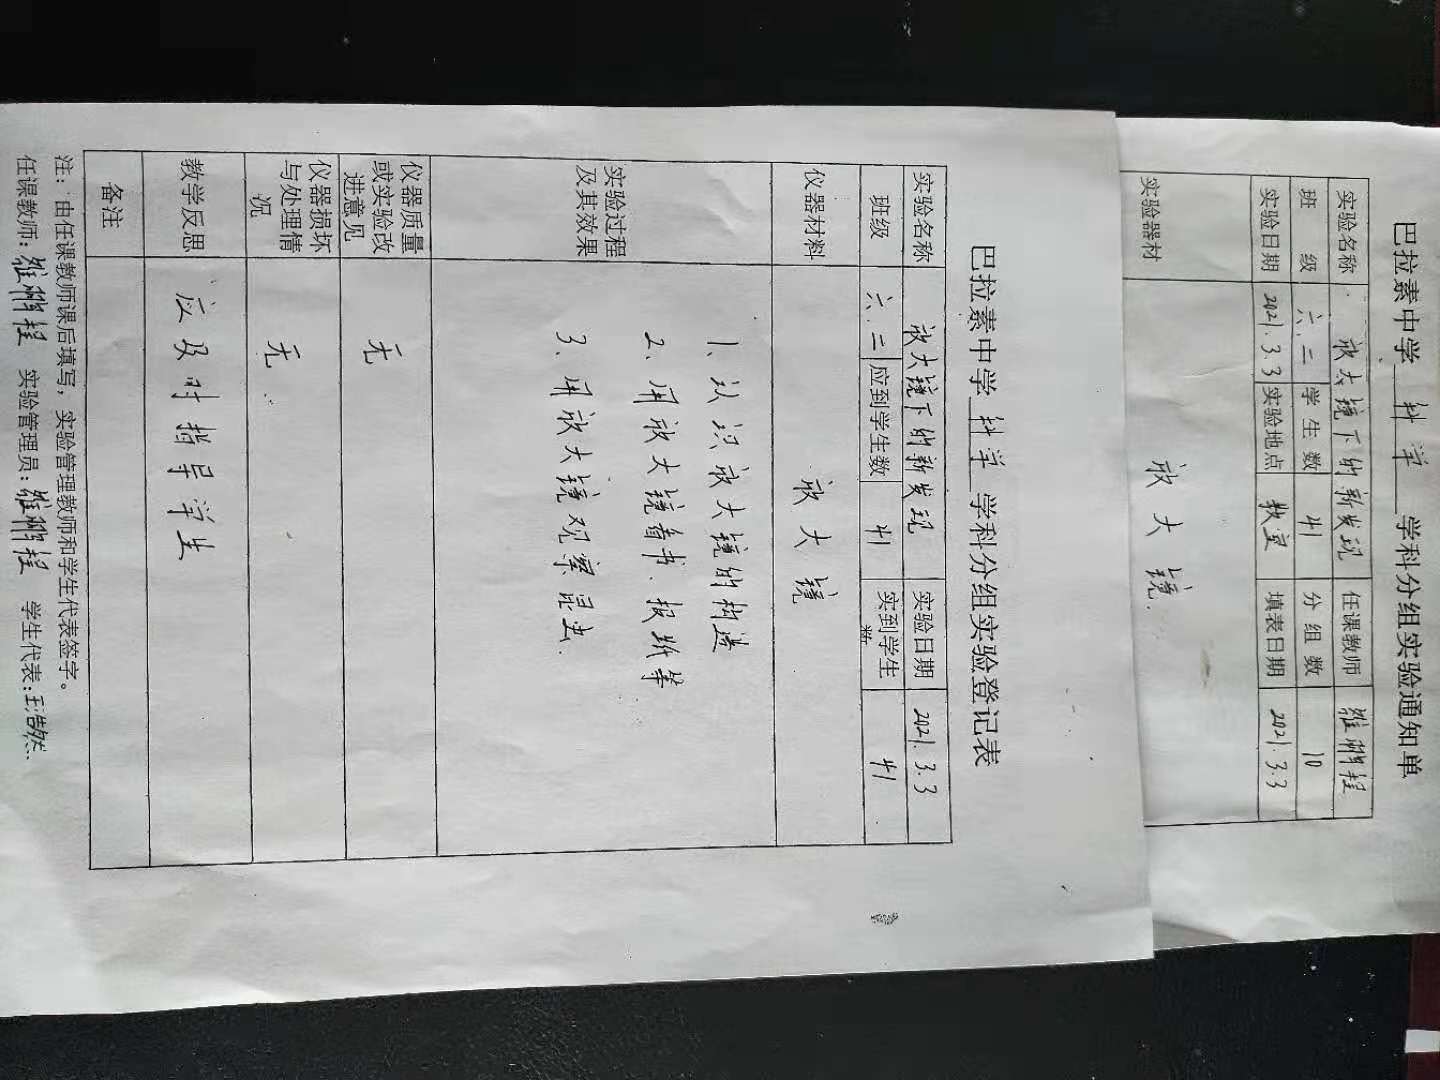 巴拉素中学 科学 学科分组实验通知单
实验名称 放大镜下的新发现 任课教师
班级 六.二 学生数 41 分组数 10
实验日期 2021.3.3 实验地点 教室 填表日期 2021.3.3
实验器材 放大镜.
巴拉素中学 科学 学科分组实验登记表
实验名称 放大镜下的新发现 实验日期 2021.3.3
班级 六.二 应到学生数 41 实到学生数 41
仪器材料 放大镜
实验过程及其效果
1、认识放大镜的构造
2、用放大镜看书、报纸等
3、用放大镜观察昆虫.
仪器质量或实验改进意见 无
仪器损坏与处理情况 无.
教学反思 应及时指导学生
备注
注：由任课教师课后填写，实验管理教师和学生代表签字。
任课教师： 实验管理员： 学生代表：王浩然.